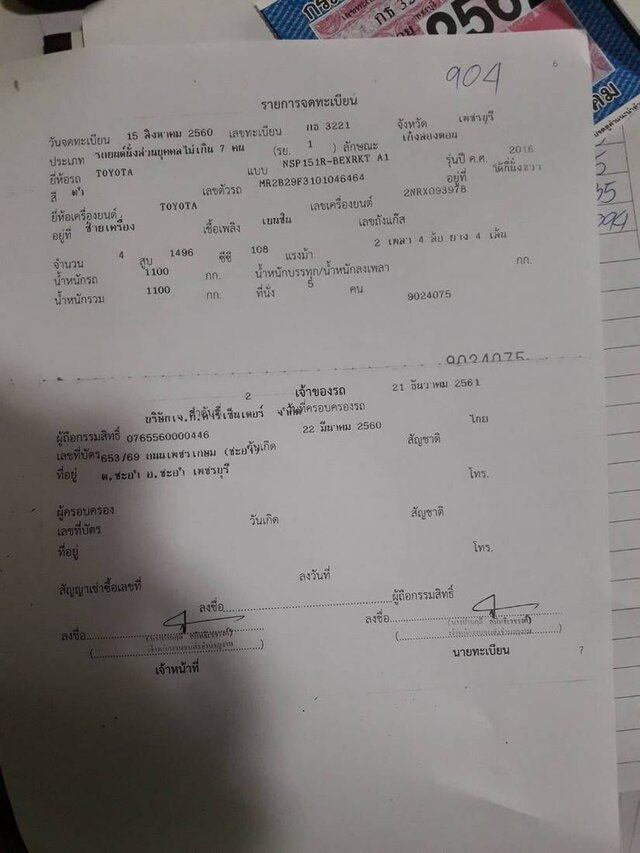 904
6
รายการจดทะเบียน
วันจดทะเบียน 15 สิงหาคม 2560 เลขทะเบียน กธ 3221 จังหวัด เพชรบุรี
ประเภท รถยนต์นั่งส่วนบุคคลไม่เกิน 7 คน (รย. 1 ) ลักษณะ เก๋งสองตอน
ยี่ห้อรถ TOYOTA แบบ NSP151R-BEXRKT A1 รุ่นปี ค.ศ. 2016
สี ดำ เลขตัวรถ MR2B29F3101046464 อยู่ที่
ยี่ห้อเครื่องยนต์ TOYOTA เลขเครื่องยนต์ 2NRX093978
อยู่ที่ ซ้ายเครื่อง เชื้อเพลิง เบนซิน เลขถังแก๊ส
จำนวน 4 สูบ 1496 ซีซี 108 แรงม้า 2 เพลา 4 ล้อ ยาง 4 เส้น
น้ำหนักรถ 1100 กก. น้ำหนักบรรทุก/น้ำหนักลงเพลา กก.
น้ำหนักรวม 1100 กก. ที่นั่ง 5 คน 9024075
9024075
2 เจ้าของรถ 21 ธันวาคม 2561
วันที่ครอบครองรถ
ผู้ถือกรรมสิทธิ์ 0765560000446 22 มีนาคม 2560 ไทย
เลขที่บัตร 653/69 ถนนเพชรเกษม (ชะอำ) วันเกิด สัญชาติ
ที่อยู่ ต.ชะอำ อ.ชะอำ เพชรบุรี โทร.
ผู้ครอบครอง
เลขที่บัตร วันเกิด สัญชาติ
ที่อยู่ โทร.
สัญญาเช่าซื้อเลขที่ ลงวันที่
ลงชื่อ ผู้ถือกรรมสิทธิ์
ลงชื่อ ลงชื่อ
เจ้าหน้าที่ นายทะเบียน 7